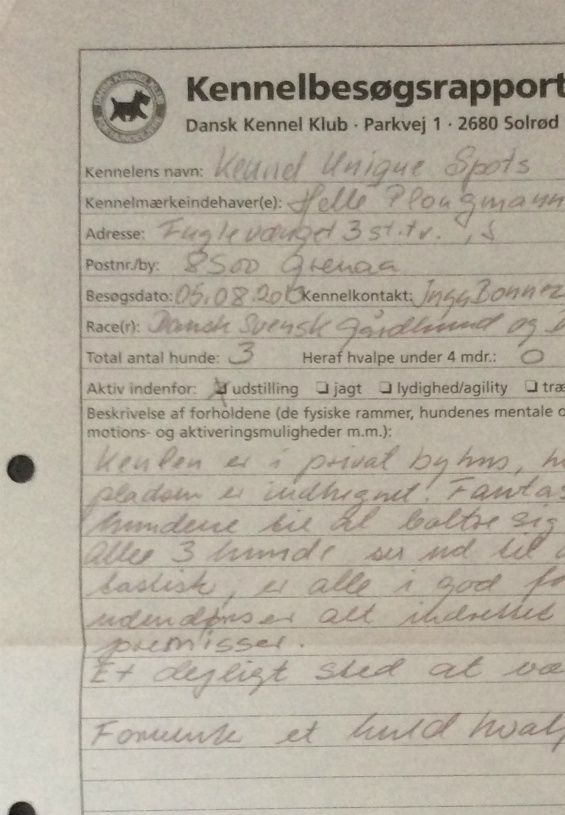 Kennelbesøgsrapport
Dansk Kennel Klub · Parkvej 1 · 2680 Solrød
Kennelens navn: Kennel Unique Spots
Kennelmærkeindehaver(e): Helle Plougmann
Adresse: Fuglevænget 3 st.tv.
Postnr./by: 8500 Grenaa
Besøgsdato: 05.08.2013 Kennelkontakt: Inga
Race(r): Dansk Svensk Gårdhund og
Total antal hunde: 3 Heraf hvalpe under 4 mdr.: 0
Aktiv indenfor: udstilling jagt lydighed/agility træ
Beskrivelse af forholdene (de fysiske rammer, hundenes mentale
motions- og aktiveringsmuligheder m.m.):
er i privat byhus,
pladsen er indhegnet. Fantas
hundene til at boltre sig
alle 3 hunde ser ud til
tastisk, er alle i god
udendørs er alt indrettet
premisser.
Et dejligt sted at væ
et kuld hval